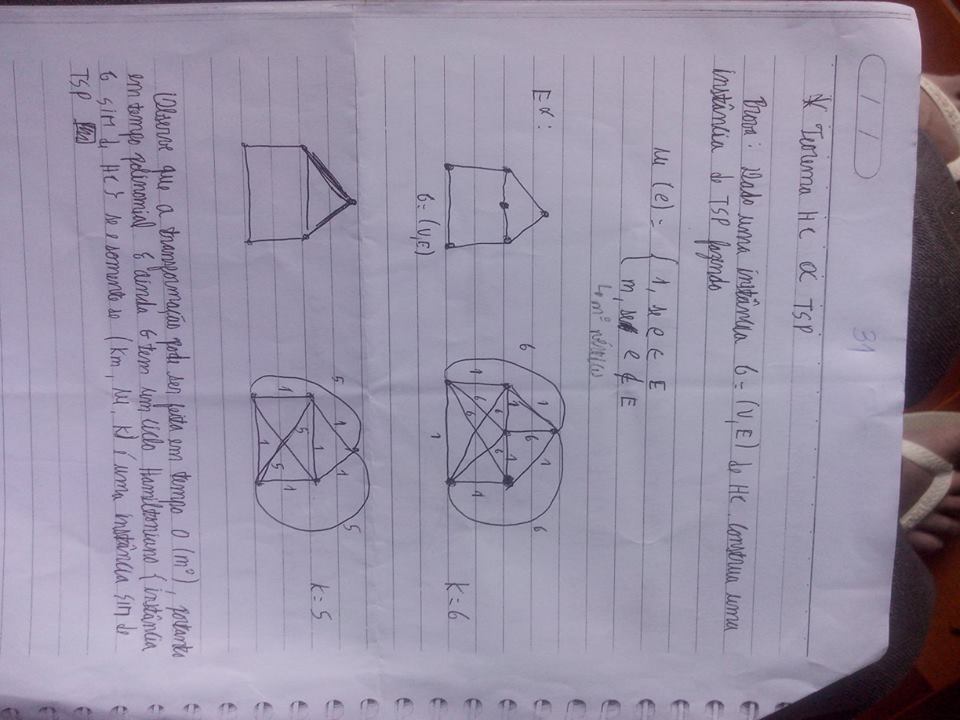 / /
31
* Teorema HC α TSP
Prova: Dado uma instância G = (V, E) de HC. Construa uma
instância do TSP fazendo
w(e) = { 1, se e ∈ E
n, se e ∉ E
↳ nº vértices
Ex:
G = (V, E)
6
1
1
6
6
1
1
6
6
6
1
1
1
6
K = 6
5
1
1
1
5
1
5
1
1
5
K = 5
Observe que a transformação pode ser feita em tempo O(n²), portanto
em tempo polinomial E ainda G tem um ciclo Hamiltoniano {instância
G SIM de HC} se e somente se (Kn, W, K) é uma instância SIM de
TSP